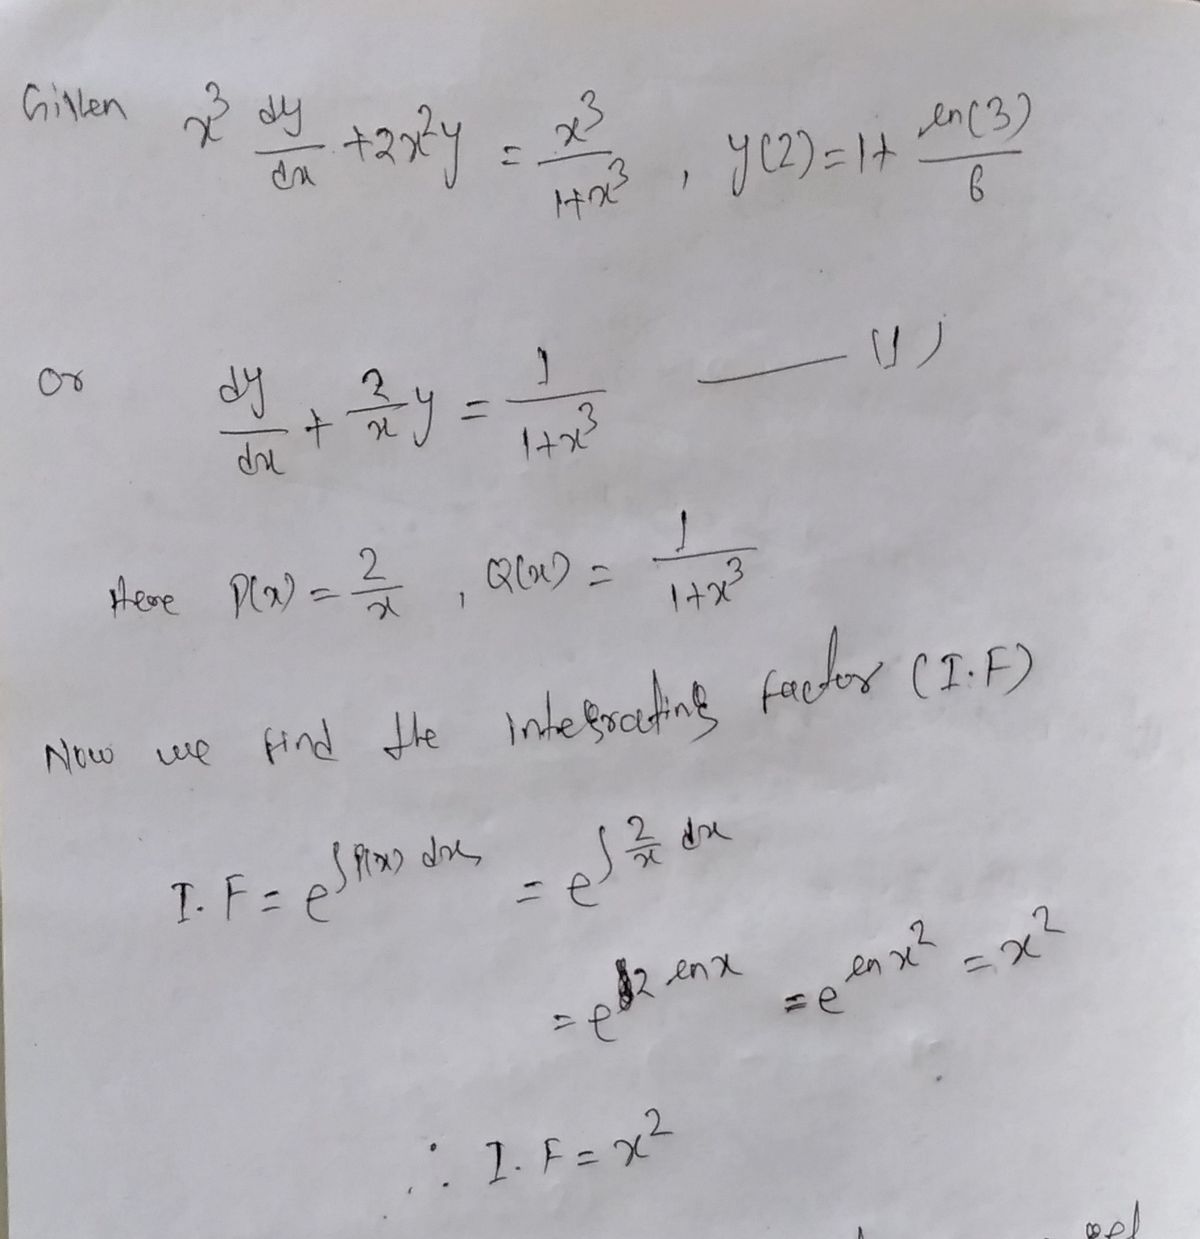 Given x³ dy/dx + 2x²y = x³/(1+x³) , y(2) = 1 + ln(3)/6
Or dy/dx + 2/x y = 1/(1+x³) —— (1)
Here P(x) = 2/x , Q(x) = 1/(1+x³)
Now we find the integrating factor (I.F)
I.F = e^∫P(x) dx = e^∫ 2/x dx
= e^2 ln x = e^ln x² = x²
∴ I.F = x²
get